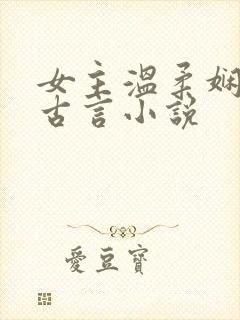 女主溫柔嫻
古言小說
愛豆寶